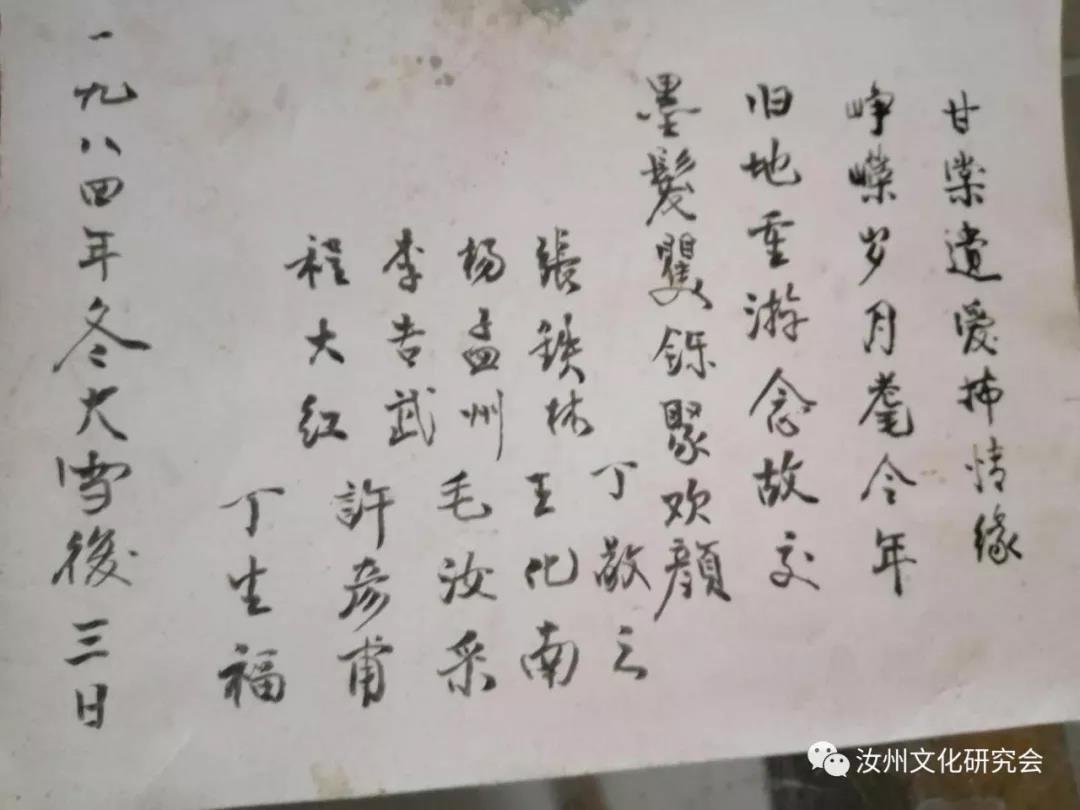 甘棠遗爱抪情缘
峥嵘岁月耄今年
旧地重游念故交
墨髮矍铄聚欢颜
丁敬之
張鐵林
王化南
杨孟州
毛汝采
李吉武
許彦甫
程大红
丁生福
一九八四年冬大雪後三日
汝州文化研究会